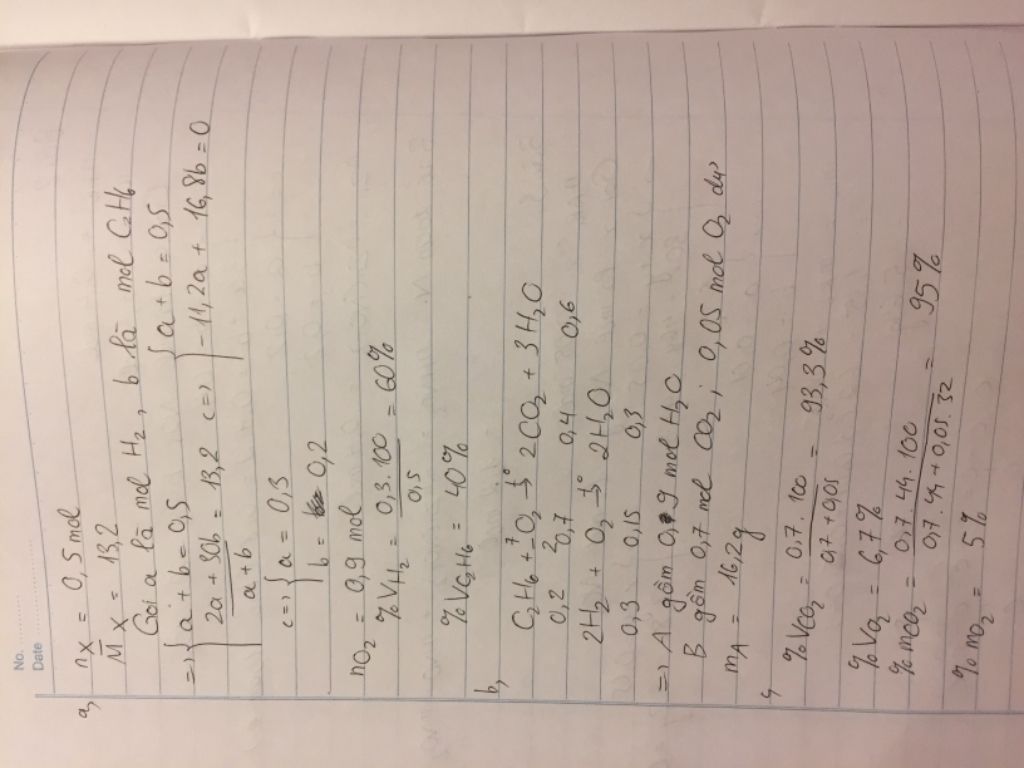 No.
Date
a, nX = 0,5 mol
M̅X = 13,2
Gọi a là mol H2, b là mol C2H6
=> { a + b = 0,5 { a + b = 0,5
2a + 30b / a + b = 13,2 <=> -11,2a + 16,8b = 0
<=> { a = 0,3
b = 0,2
nO2 = 0,9 mol
%VH2 = 0,3 . 100 / 0,5 = 60%
%VC2H6 = 40%
b, C2H6 + 7/2 O2 -t°-> 2CO2 + 3H2O
0,2 0,7 0,4 0,6
2H2 + O2 -t°-> 2H2O
0,3 0,15 0,3
=> A gồm 0,9 mol H2O
B gồm 0,7 mol CO2 ; 0,05 mol O2 dư
mA = 16,2g
c,
%VCO2 = 0,7 . 100 / 0,7 + 0,05 = 93,3%
%VO2 = 6,7%
%mCO2 = 0,7 . 44 . 100 / 0,7 . 44 + 0,05 . 32 = 95%
%mO2 = 5%